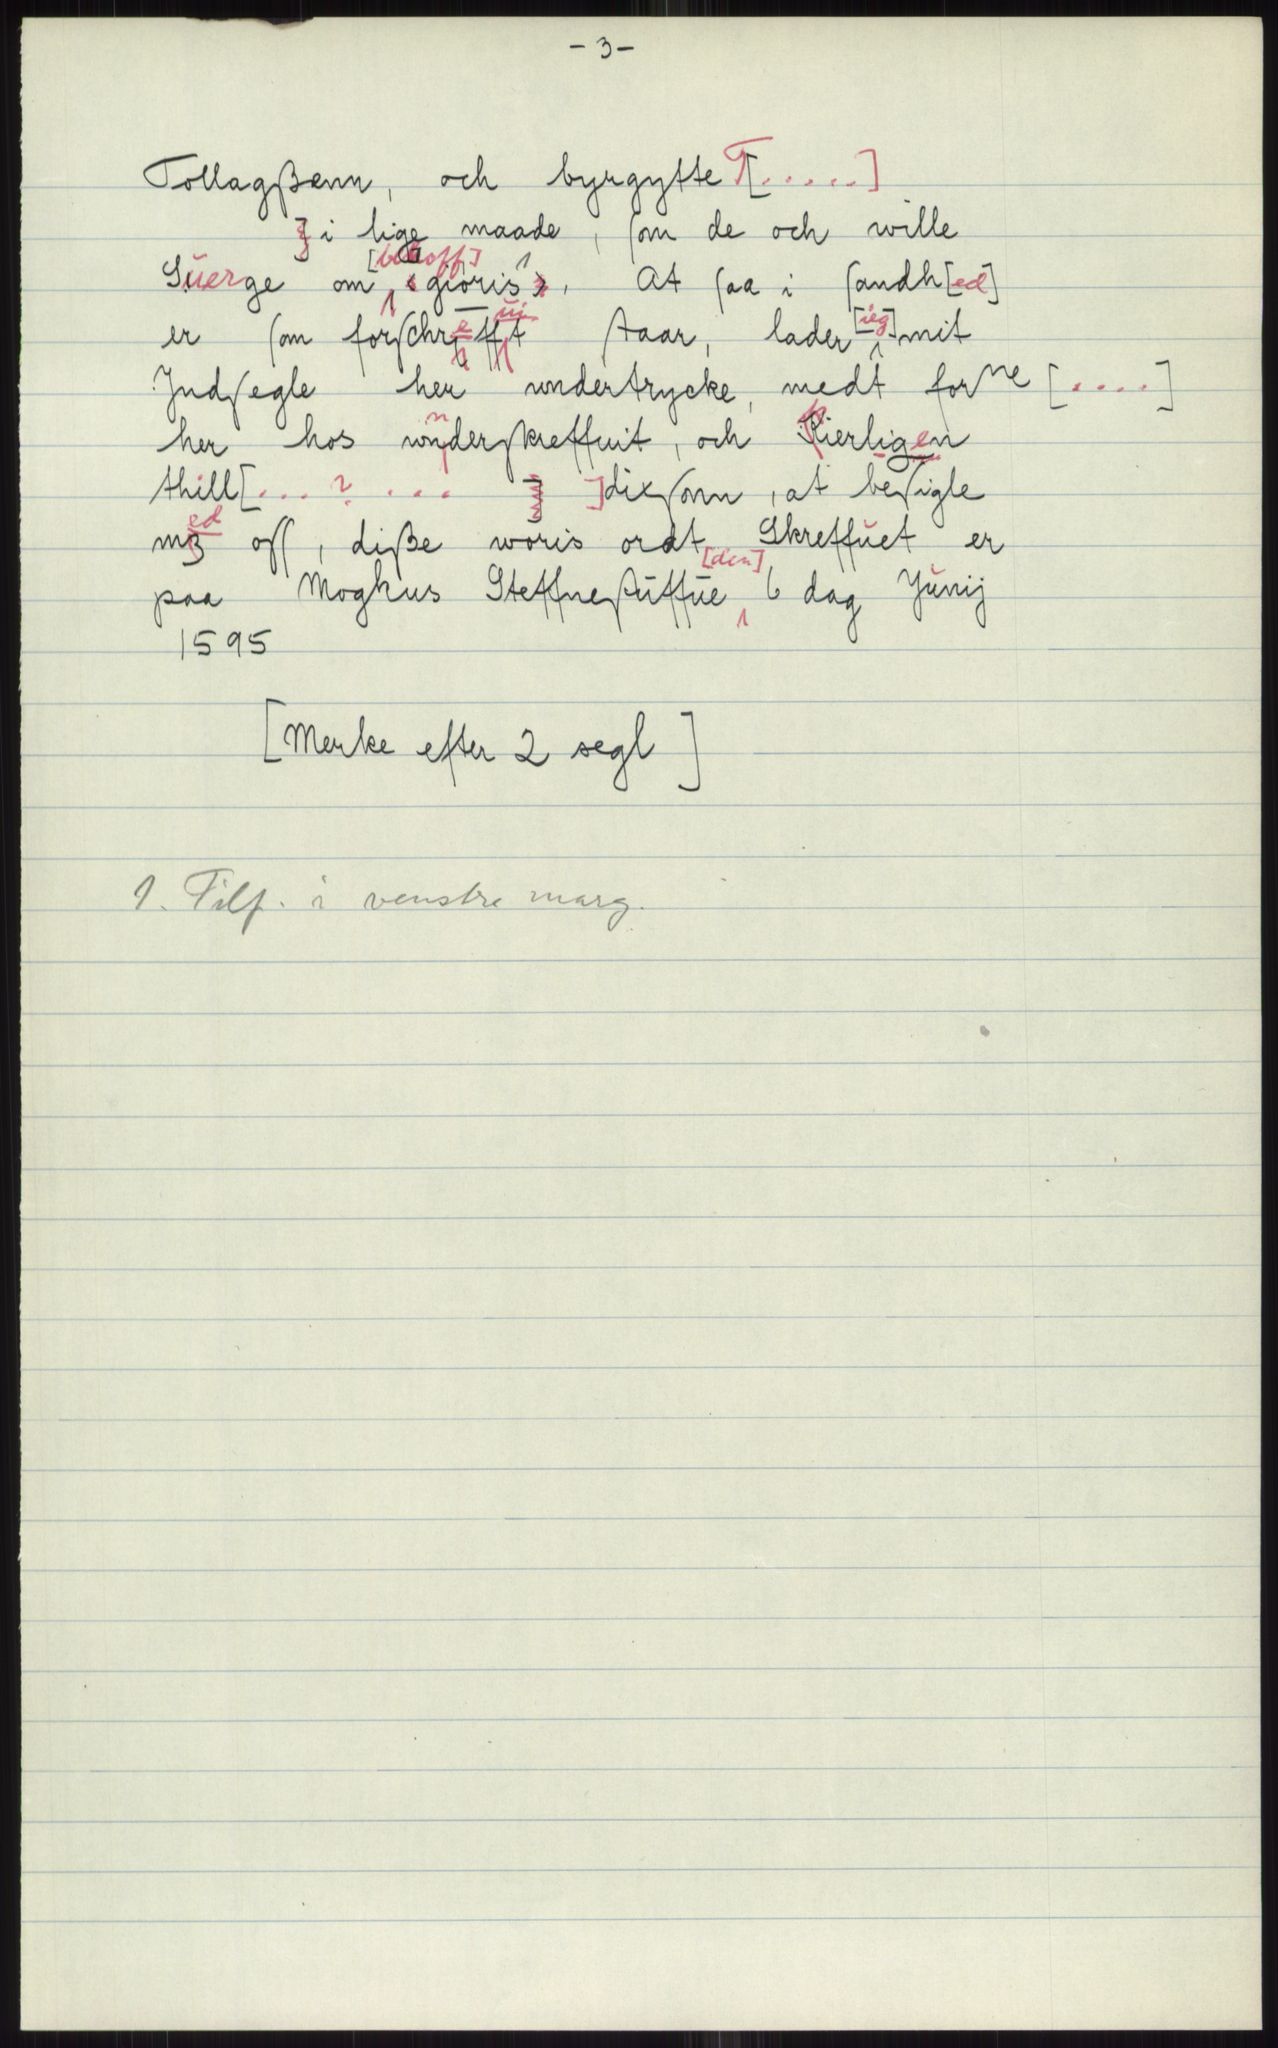 - 3 -
Tollagßenn, och byrgytte T[.....]
] i lige maade, ſom de och wille
Sŭerge om [behoff] gioris ¹⟩, At ſaa i ſandh[ed]
er ſom forſchreffŭit ſtaar, lader [ieg] mit
Jndſegle her wndertrycke, medt forne [....]
her hos wnderſkreffuit, och kierligen
thill[... ? ... ]dixſonn, at beſigle
med oſſ, diße woris ordt Skreffŭet er
paa Mogkus Steffneſtŭffŭe [den] 6 dag Jŭnij
1595
[Merke efter 2 segl]
1. Tilf. i venstre marg.